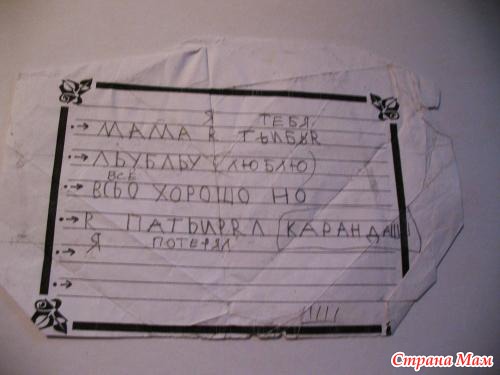 Я ТЕБЯ
МАМА R ТЫБЯR
ЛЬУБЛЬУ (ЛЮБЛЮ)
ВСЕ
ВСЬО ХОРОШО НО
R ПАТЫРЯЛ (КАРАНДАШ)
Я ПОТЕРЯЛ
Страна Мам